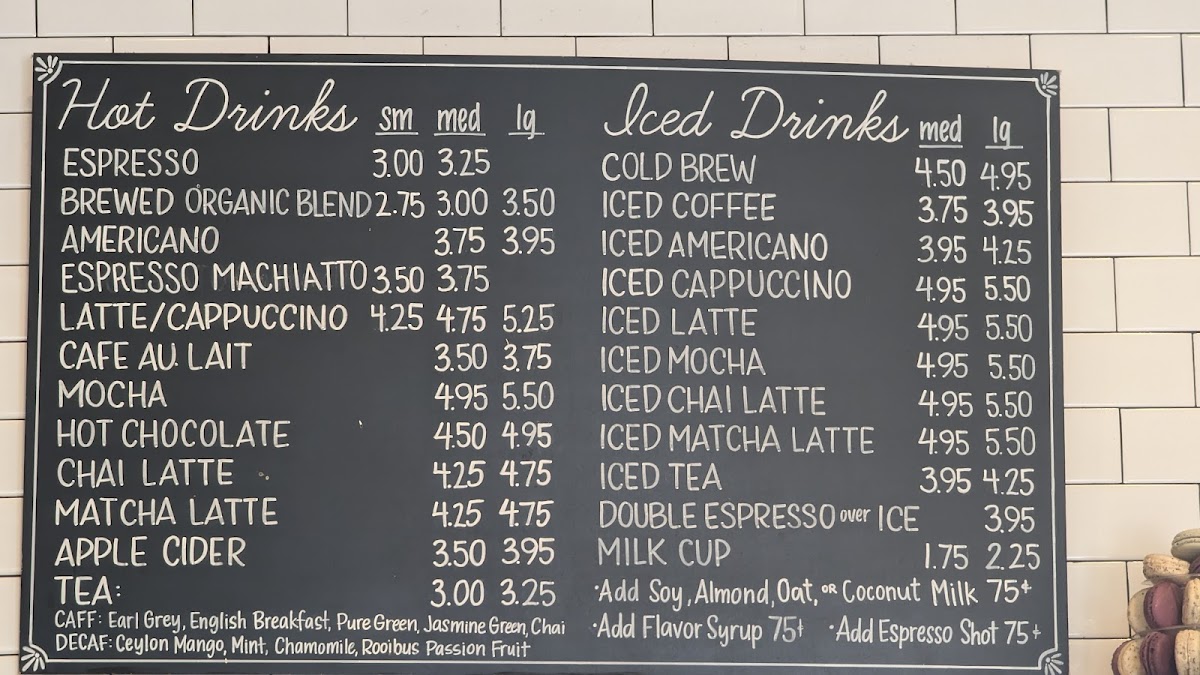 Hot Drinks sm med lg
ESPRESSO 3.00 3.25
BREWED ORGANIC BLEND 2.75 3.00 3.50
AMERICANO 3.75 3.95
ESPRESSO MACHIATTO 3.50 3.75
LATTE/CAPPUCCINO 4.25 4.75 5.25
CAFE AU. LAIT 3.50 3.75
MOCHA 4.95 5.50
HOT CHOCOLATE 4.50 4.95
CHAI LATTE 4.25 4.75
MATCHA LATTE 4.25 4.75
APPLE CIDER 3.50 3.95
TEA: 3.00 3.25
CAFF: Earl Grey, English Breakfast, Pure Green, Jasmine Green, Chai
DECAF: Ceylon Mango, Mint, Chamomile, Rooibus Passion Fruit
Iced Drinks med lg
COLD BREW 4.50 4.95
ICED COFFEE 3.75 3.95
ICED AMERICANO 3.95 4.25
ICED CAPPUCCINO 4.95 5.50
ICED LATTE 4.95 5.50
ICED MOCHA 4.95 5.50
ICED CHAI LATTE 4.95 5.50
ICED MATCHA LATTE 4.95 5.50
ICED TEA 3.95 4.25
DOUBLE ESPRESSO over ICE 3.95
MILK CUP 1.75 2.25
·Add Soy, Almond, Oat, OR Coconut Milk 75¢
·Add Flavor Syrup 75¢ ·Add Espresso Shot 75¢